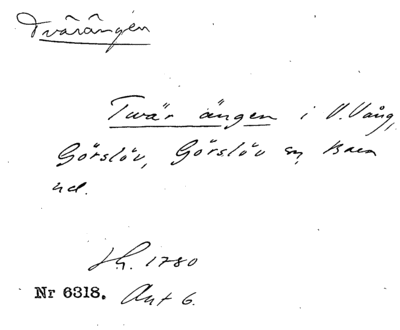 Tvärängen
Twär ängen i V. Vång,
Görslöv, Görslöv sn, Bara
hd.
Lh. 1780
Nr 6318. Akt 6.